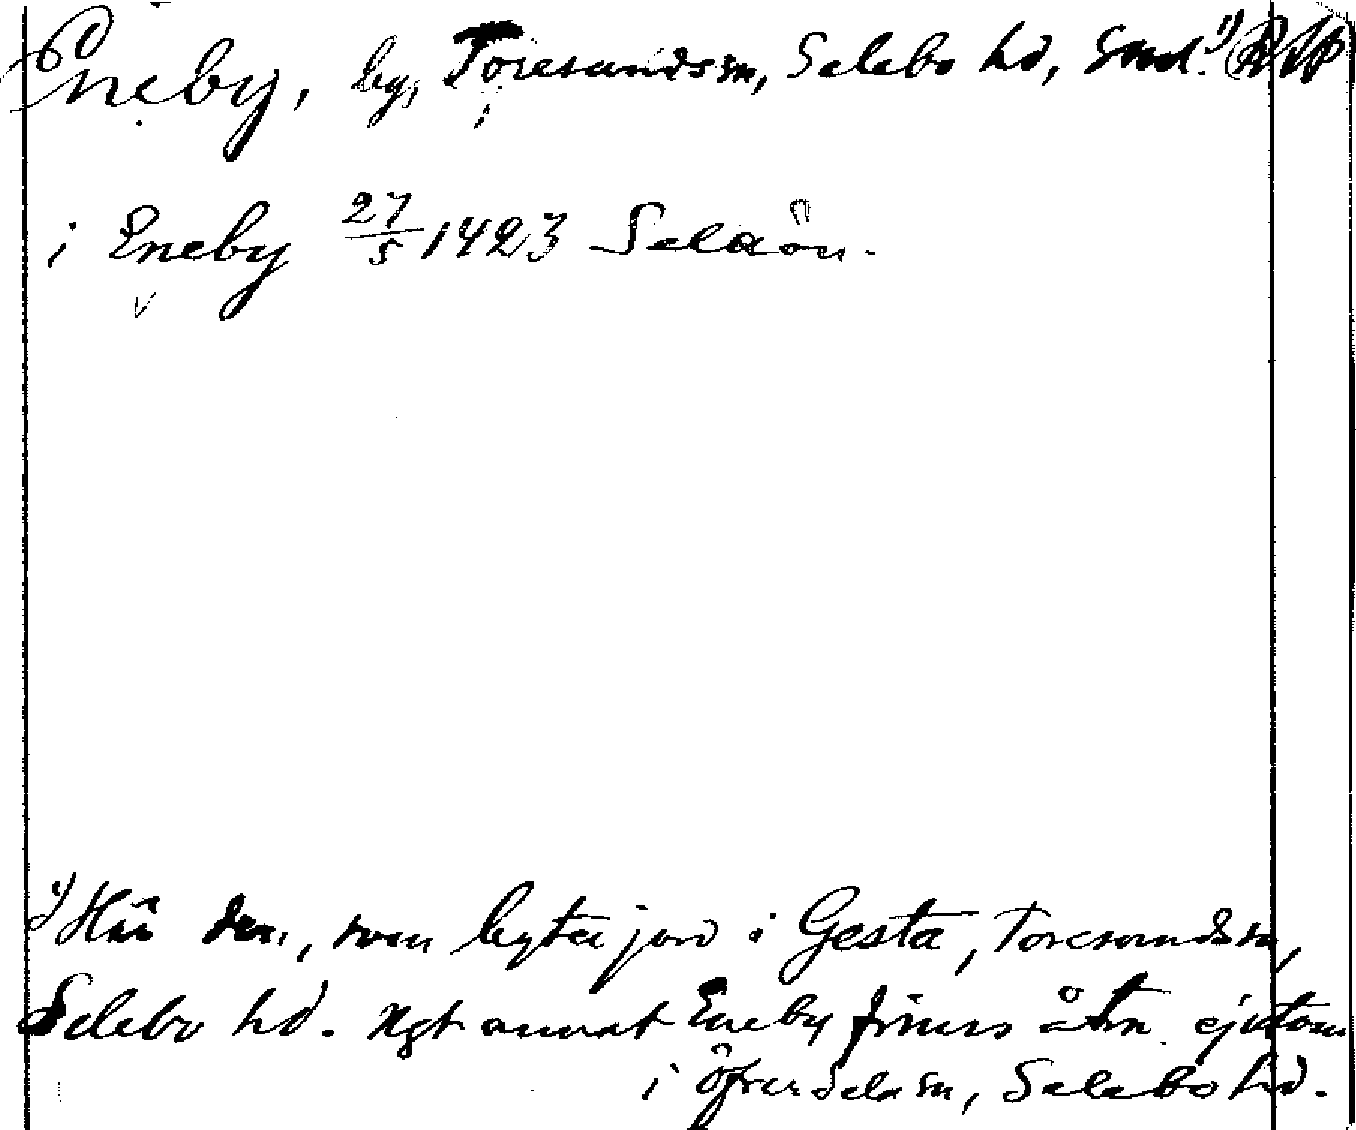 Eneby, by, Toresunds sn, Selebo hd, Smd. 1)
i Eneby 27/5 1423 Selaön.
1) Här den, som byter jord i Gesta, Toresunds sn,
Selebo hd. Ngt annat Eneby finns åtm. ej utom
i Öfverselö sn, Selebo hd.